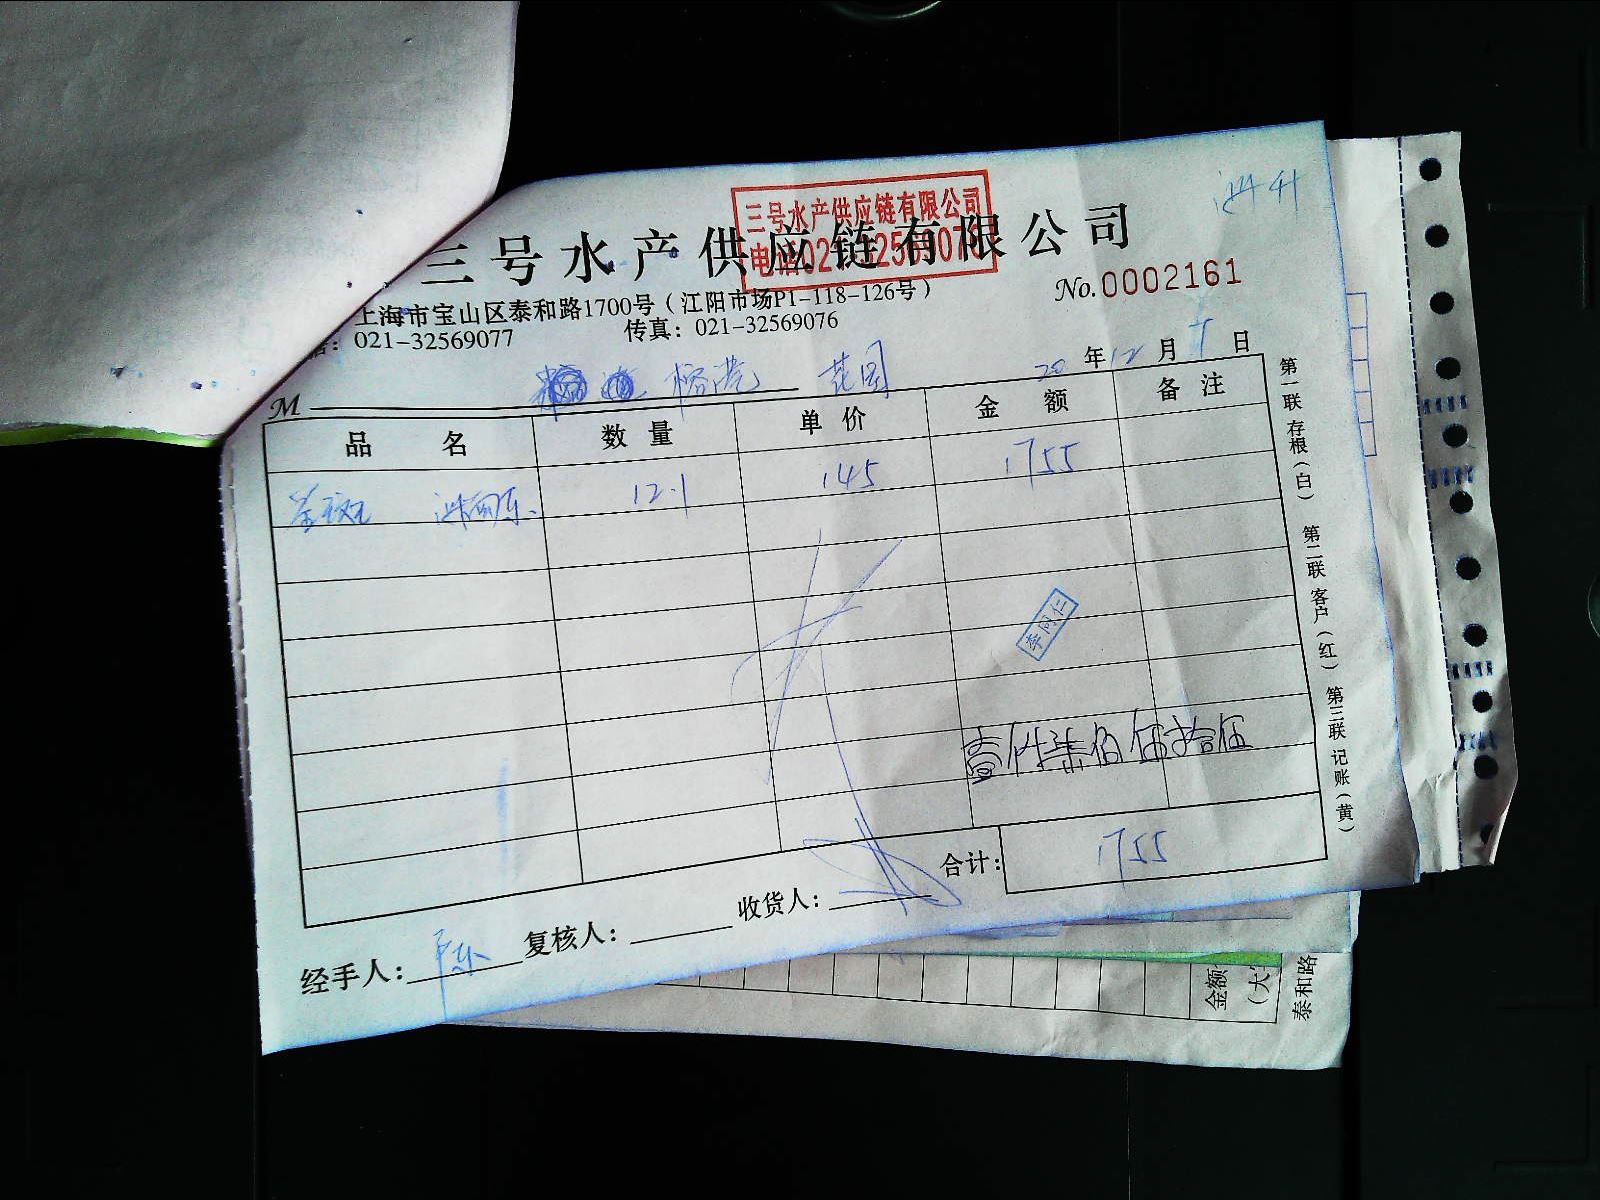 三号水产供应链有限公司
三号水产供应链有限公司
上海市宝山区泰和路1700号（江阳市场P1-118-126号）
No.0002161
021-32569077 传真：021-32569076
M 榕港 花园 20 年 12 月 日
品 名 数 量 单 价 金 额 备 注
12.1 145 1755
李同仁
壹仟柒佰伍拾伍
合计： 1755
经手人： 复核人： 收货人：
第一联 存根（白） 第二联 客户（红） 第三联 记账（黄）
金额
泰和路